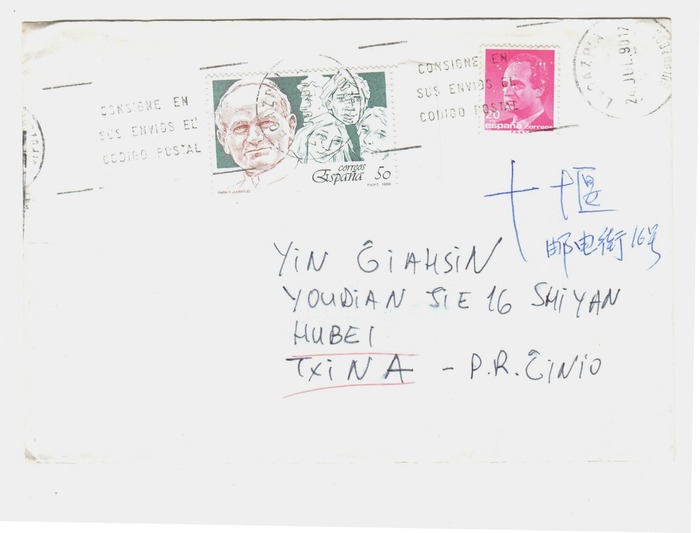 CONSIGNE EN
SUS ENVIOS EL
CODIGO POSTAL
correos
España 50
CONSIGNE EN
SUS ENVIOS EL
CODIGO POSTAL
20
españa correos
十堰
邮电街16号
YIN ĜIAHSIN
YOUDIAN JIE 16 SHIYAN
HUBEI
TXINA - P.R. ĈINIO